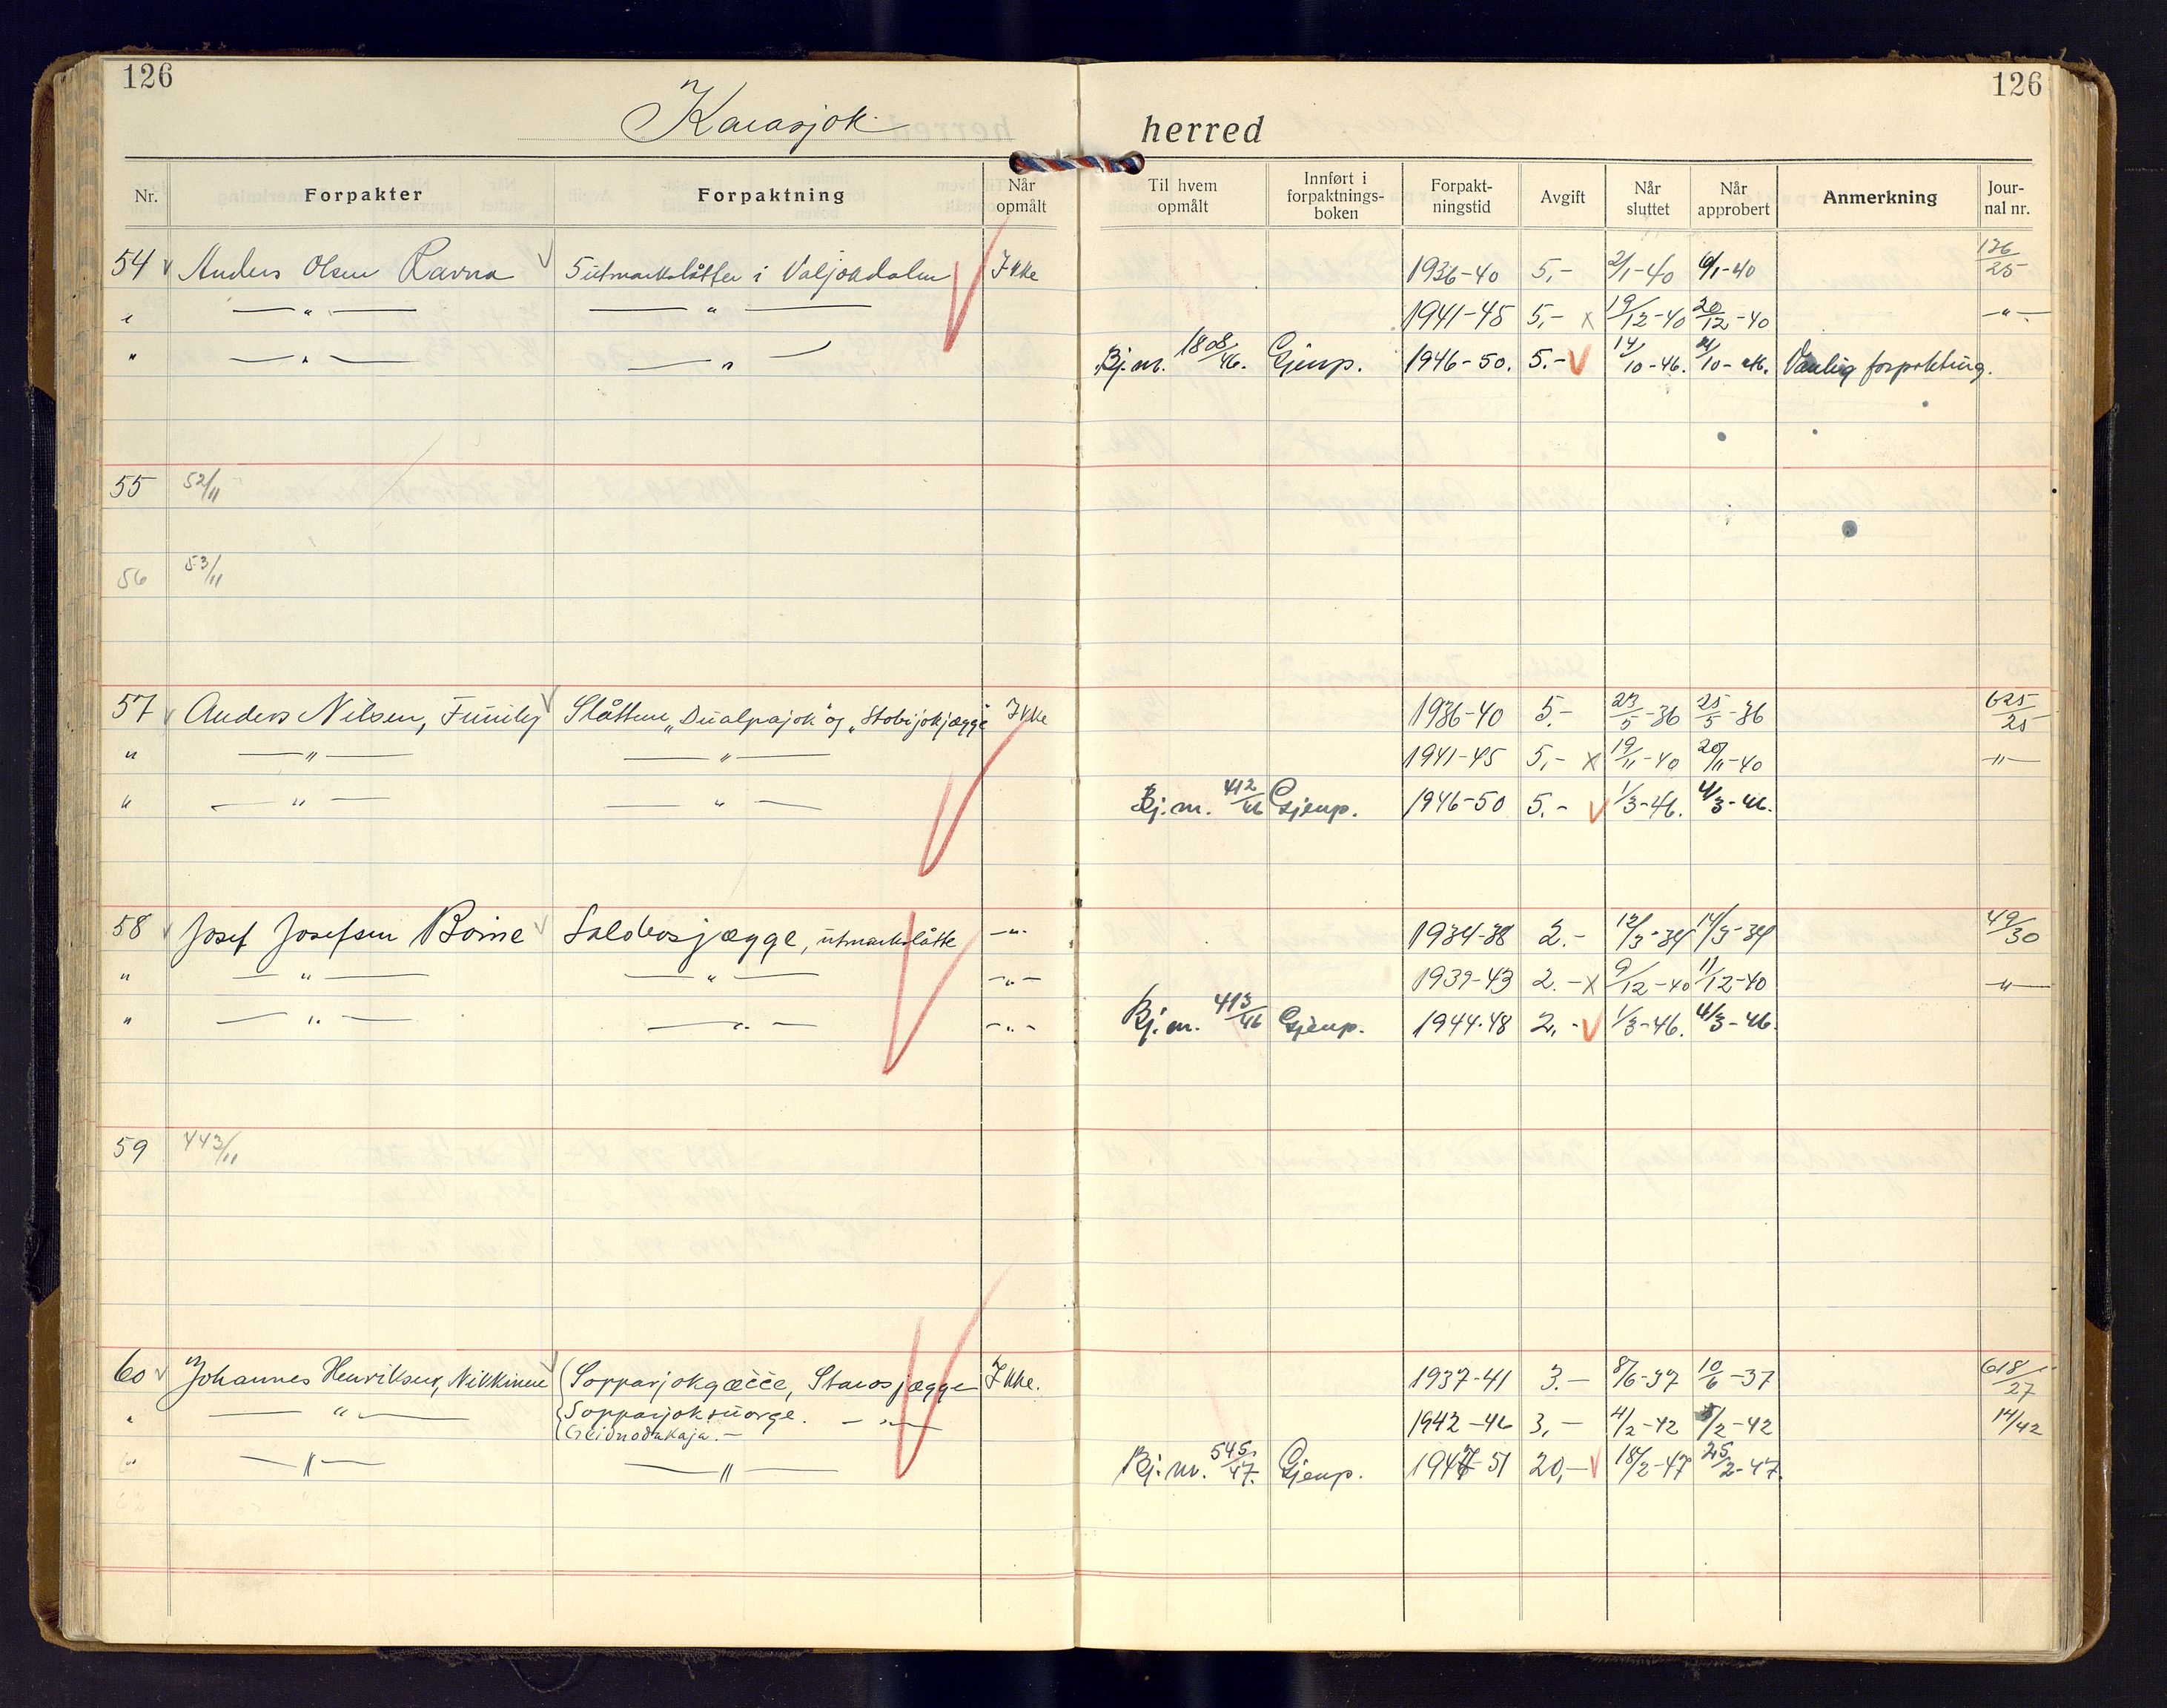 126
126
Karasjok herred
Nr. Forpakter Forpaktning Når opmålt Til hvem opmålt Innført i forpaktnings-boken Forpakt-ningstid Avgift Når sluttet Når approbert Anmerkning Jour-nal nr.
54 Anders Olsen Ravna 5 utmarkslåtter i Valjokdalen Ikke 1936-40 5,- 2/1-40 6/1-40 126/25
" — " — — " — 1941-45 5,- x 19/12-40 20/12-40 — " —
" — " — — " — Bj.nr. 1808/46. Gjenp. 1946-50. 5.- 14/10-46. 14/10-46. Vanlig forpakting.
55 52/11
56 53/11
57 Anders Nilsen, Fimilej Slåtten „Dualpajok" og „Stobijokjægge" Ikke 1936-40 5.- 23/5-36 25/5-36 625/25
" — " — — " — 1941-45 5,- x 19/11-40 20/11-40 — " —
" — " — — " — Bj.nr. 412/46 Gjenp. 1946-50 5.- 1/3-46. 4/3-46.
58 Josef Josefsen Boine utmarkslåtte — " — 1934-38 2.- 12/3-34 14/3-34 49/30
" — " — — " — — " — 1939-43 2.- x 9/12-40 11/12-40 — " —
" — " — — " — — " — Bj.nr. 413/46 Gjenp. 1944-48 2,- 1/3-46. 4/3-46.
59 443/11
60 Johannes Henriksen, Nikkinen Sopparjokgæčče, Starosjægge Ikke. 1937-41 3.- 8/6-37 10/6-37 618/27
" — " — Sopparjoksuorge. — " — 1942-46 3,- 4/2-42 5/2-42 14/42
" — " — — " — Bj.nr. 545/47. Gjenp. 1947-51 20,- 18/2-47 25/2-47.